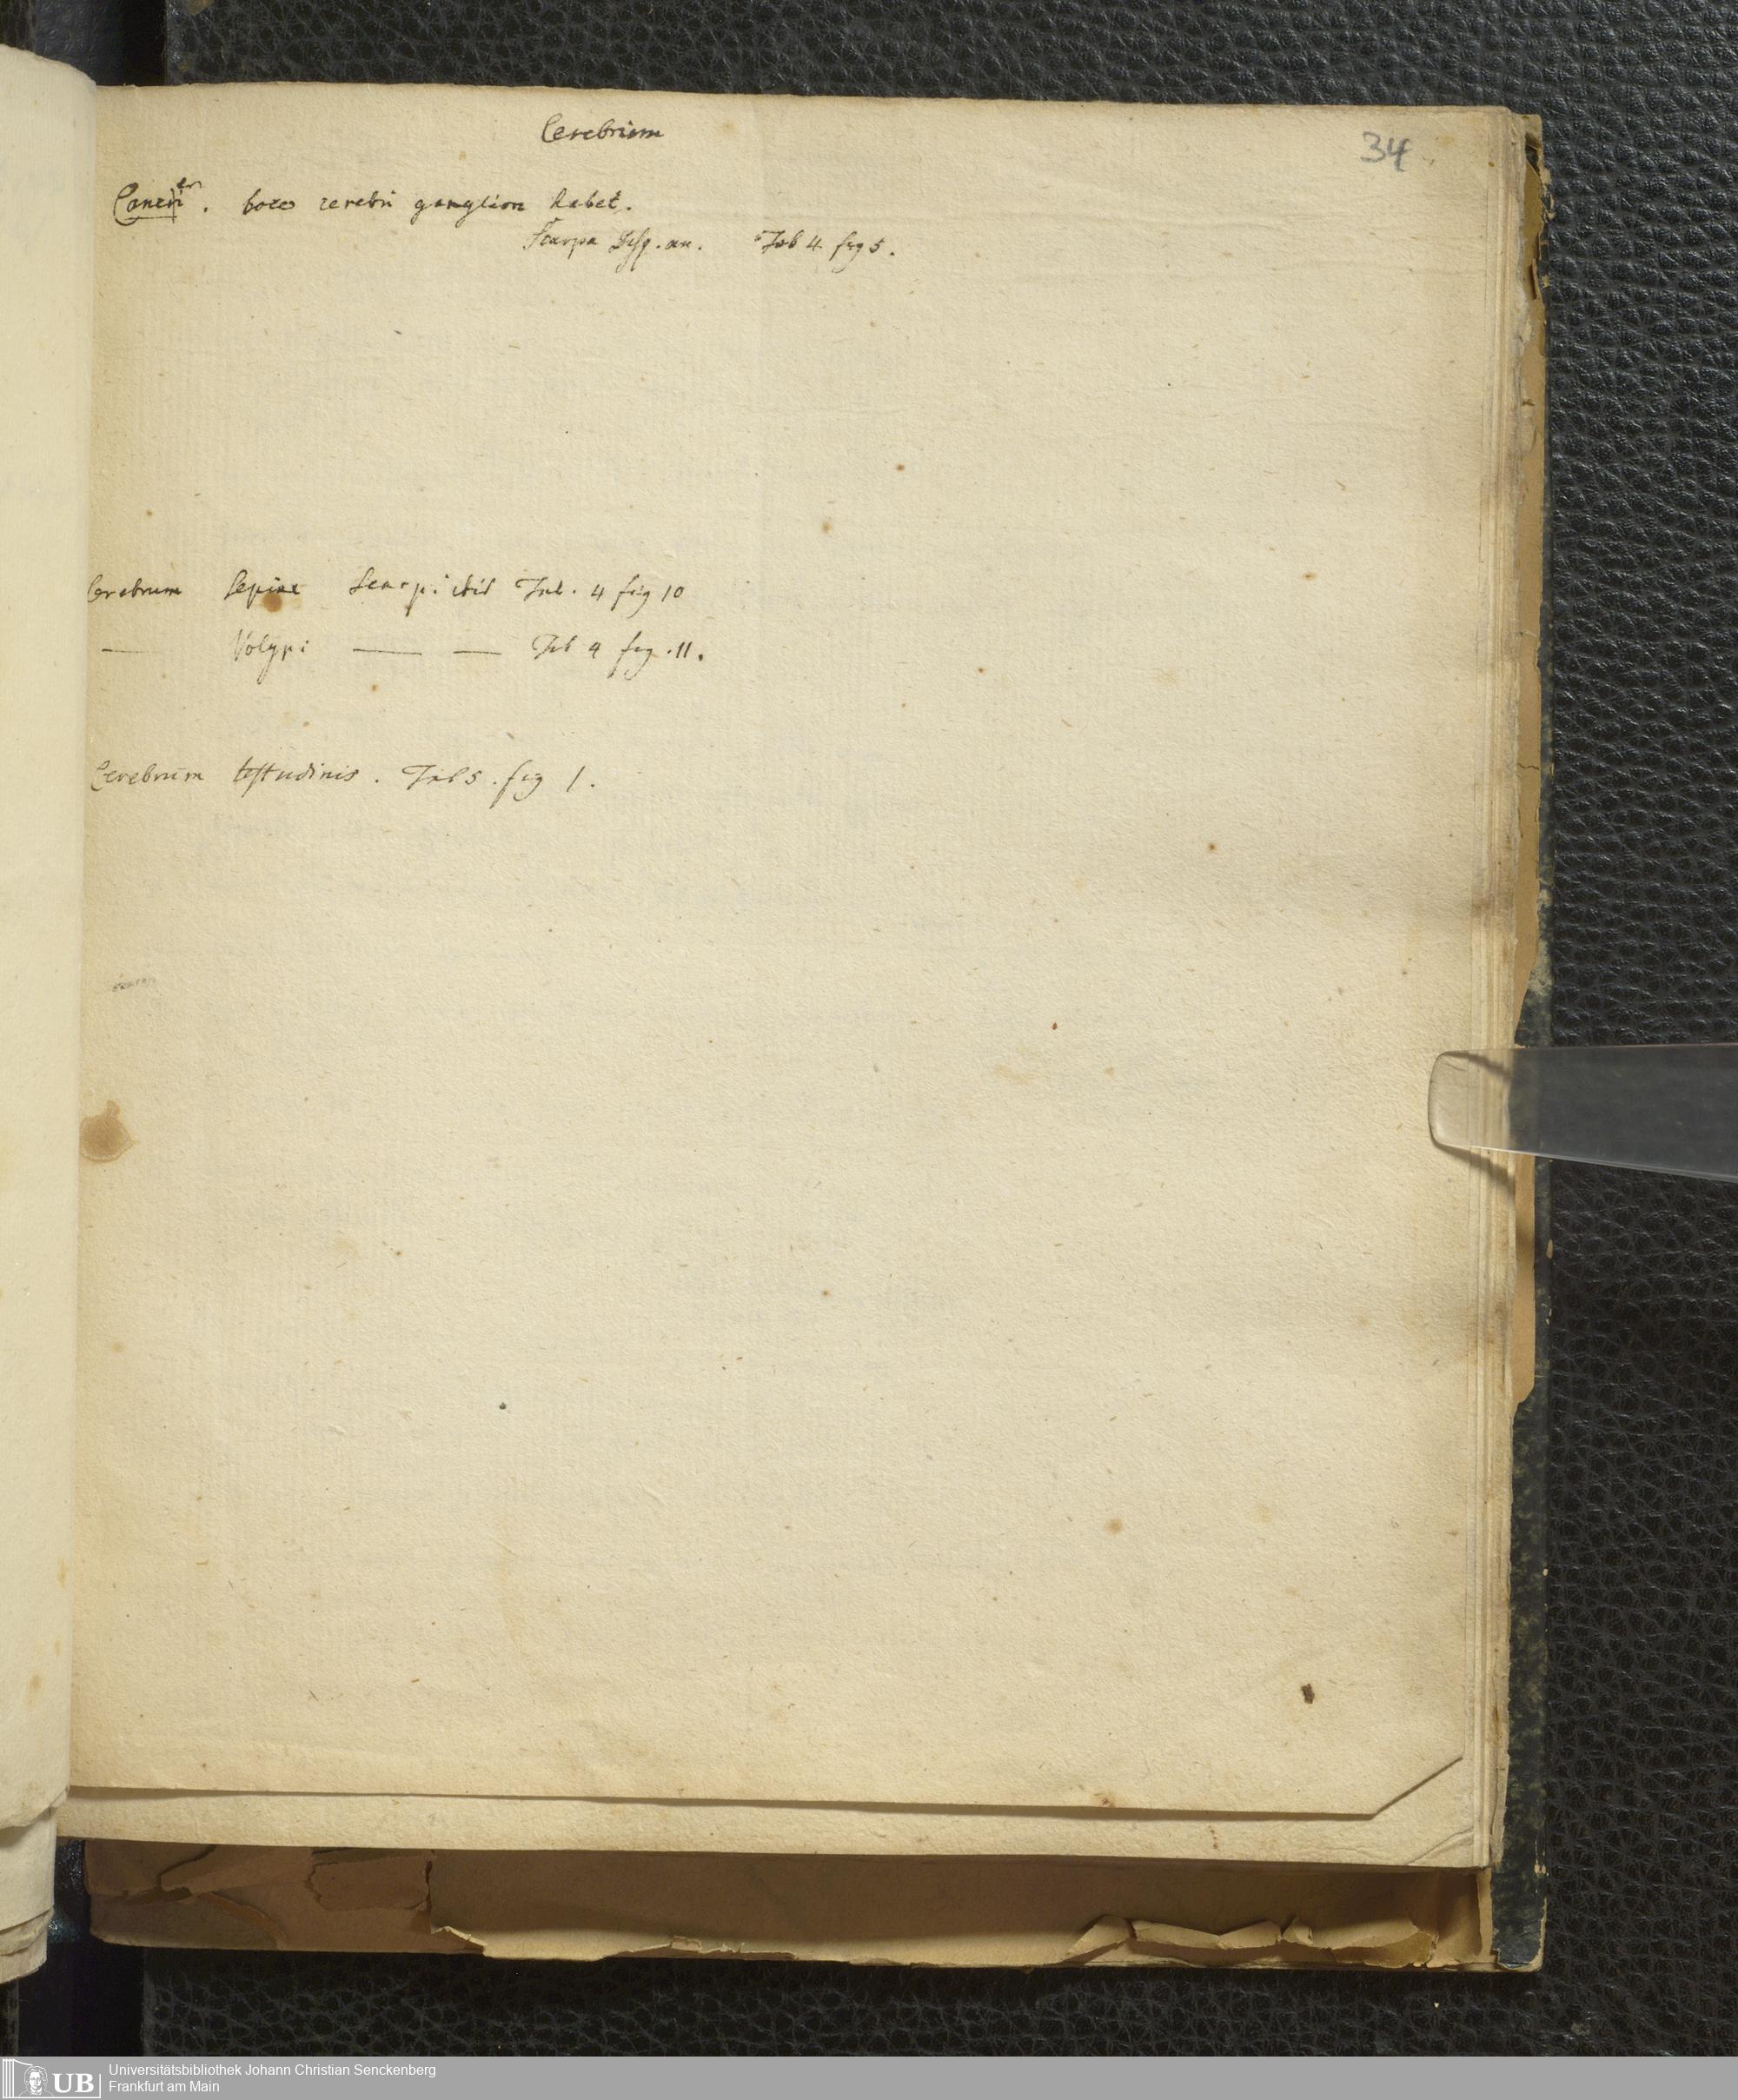 Cerebrum
34
Cancri er. loco cerebri ganglion habet.
Scarpa Disq. an. Tab 4 fig 5.
Cerebrum Sepiae Scarp: ibid Tab. 4 fig 10
— Polypi — — Tab 4 fig. 11.
Cerebrum testudinis. Tab 5. fig 1.
UB
Universitätsbibliothek Johann Christian Senckenberg
Frankfurt am Main